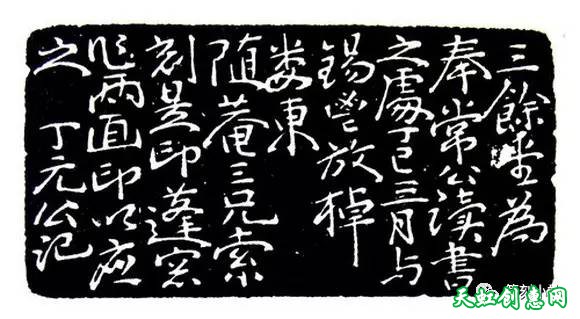 三餘堂為
奉常公讀書
之處丁巳三月与
錫鬯放棹
婁東
随菴三兄索
刻是印蓬窓
作兩面印以應
之 丁元公记
天虹创意网